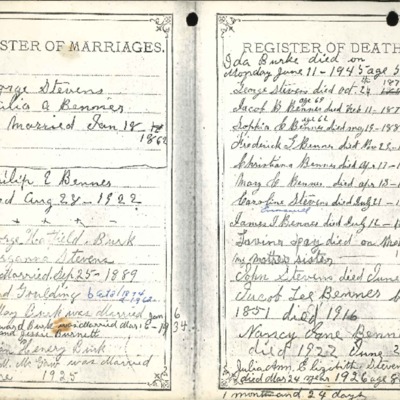 STER OF MARRIAGES.
orge Stevens
Benner
Married Jan 18
1862
hilip E Bennes
ed Aug 28 - 1922
orge Hatfield Burk
Stevens
Married Sept 25 - 1889
Goulding
Burk was married Jan 6
ward Burk was Married Mar 15 - 1934
and Jessie Burnett
Henry Burk
was Married
1925
REGISTER OF DEATH
Ida Burke died on
Monday June 11 - 1945 age
George Stevens died oct. 24
Jacob B Bennes died Feb 11 - 187
age 69
Sophia Bennes died may 19 - 188
age 62
Frederick L Bennes died Nov 23
Christiana Bennes died Apr 13
Mary C Benner died apr 18
Caroline Stevens died July 21
Emmanuel
James T Bennes died July 12
Lavina Gay died on Wed
my mother sister
John Stevens died June
Jacob Lee Bennes
1851 died 1916
Nancy Jane Benn
died 1922 June 2
Julia Ann Elizabeth Stevens
died Mar 24 year 1926 age 8
1 month and 24 days